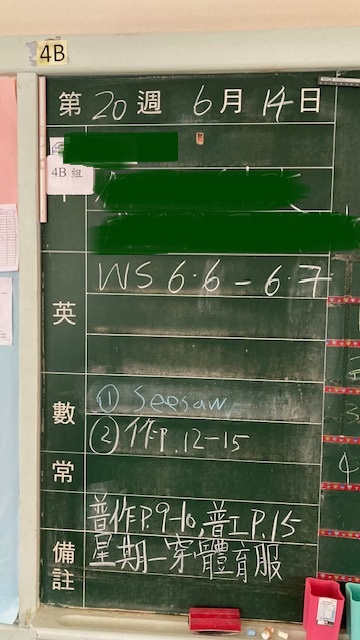 4B
第 20 週 6 月 14 日
4B 組
英 WS 6.6 - 6.7
數 ① Seesaw
② 作P.12-15
常
普作P.9-10, 普工P.15
備註 星期一穿體育服